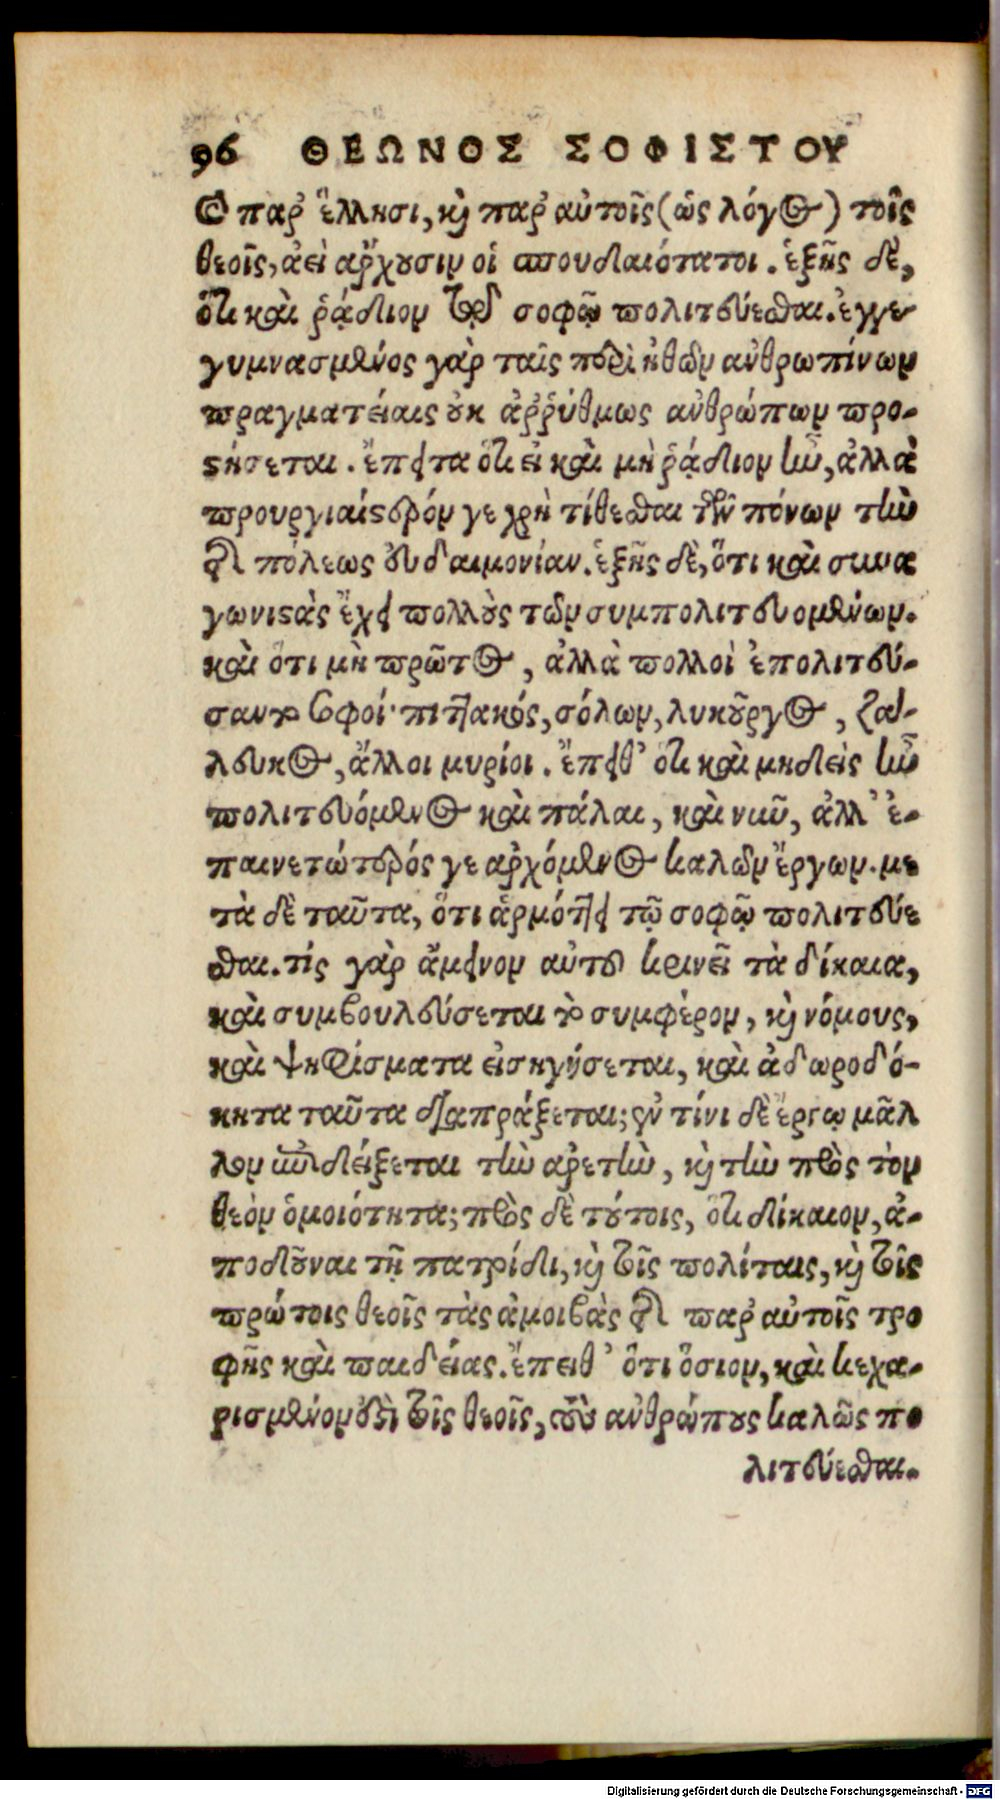 96 ΘΕΩΝΟΣ ΣΟΦΙΣΤΟΥ
παρ' ἕλλησι, κὶ παρ' αὐτοῖς (ὡς λόγος) τοῖς
θεοῖς, ἀεὶ ἄρχουσιν οἱ σπουδαιότατοι. ἑξῆς δὲ,
ὅτι καὶ ῥᾴδιον τῷ σοφῷ πολιτεύεσθαι. ἐγγε
γυμνασμένος γὰρ ταῖς περὶ τῶν ἀνθρωπίνων
πραγματείαις οὐκ ἀῤῥύθμως ἀνθρώπων προ-
στήσεται. ἔπειτα ὅτι εἰ καὶ μὴ ῥᾴδιον ἦν, ἀλλὰ
προυργιαίτερόν γε χρὴ τίθεσθαι τῶν πόνων τὴν
τῆς πόλεως εὐδαιμονίαν. ἑξῆς δὲ, ὅτι καὶ συνα
γωνιστὰς ἔχει πολλοὺς τῶν συμπολιτευομένων.
καὶ ὅτι μὴ πρῶτος, ἀλλὰ πολλοὶ ἐπολιτεύ-
σαντο σοφοί· πιττακός, σόλων, λυκοῦργος, ζαλ-
λευκος, ἄλλοι μυρίοι. ἔπειθ' ὅτι καὶ μηδεὶς ἦν
πολιτευόμενος καὶ πάλαι, καὶ νῦν, ἀλλ' ἐ-
παινετώτερός γε ἀρχόμενος καλῶν ἔργων. με
τὰ δὲ ταῦτα, ὅτι ἁρμόττει τῷ σοφῷ πολιτεύε
σθαι. τίς γὰρ ἄμεινον αὐτοῦ κρινεῖ τὰ δίκαια,
καὶ συμβουλεύσεται τὸ συμφέρον, κὶ νόμους,
καὶ ψηφίσματα εἰσηγήσεται, καὶ ἀδωροδό-
κητα ταῦτα διαπράξεται; ἐν τίνι δὲ ἔργῳ μᾶλ
λον ὑποδείξεται τὴν ἀρετὴν, κὶ τὴν πρὸς τὸν
θεὸν ὁμοιότητα; πρὸς δὲ τούτοις, ὅτι δίκαιον, ἀ-
ποδοῦναι τῇ πατρίδι, κὶ τοῖς πολίταις, κὶ τοῖς
πρώτοις θεοῖς τὰς ἀμοιβὰς τῆς παρ' αὐτοῖς τρο
φῆς καὶ παιδείας. ἔπειθ' ὅτι ὅσιον, καὶ κεχα-
ρισμένον ἐστὶ τοῖς θεοῖς, τοὺς ἀνθρώπους καλῶς πο
λιτεύεσθαι.
Digitalisierung gefördert durch die Deutsche Forschungsgemeinschaft - DFG